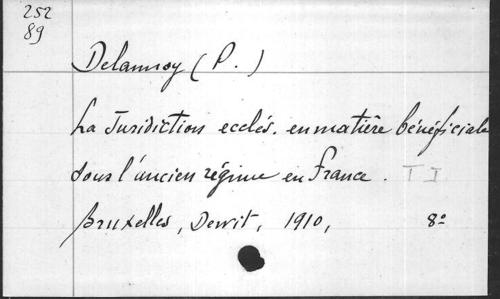 252
89
Delannoy (P.)
La Juridiction ecclés. en matière bénéficiale
sous l'ancien régime en France. T I
Bruxelles, Dewit, 1910, 8°